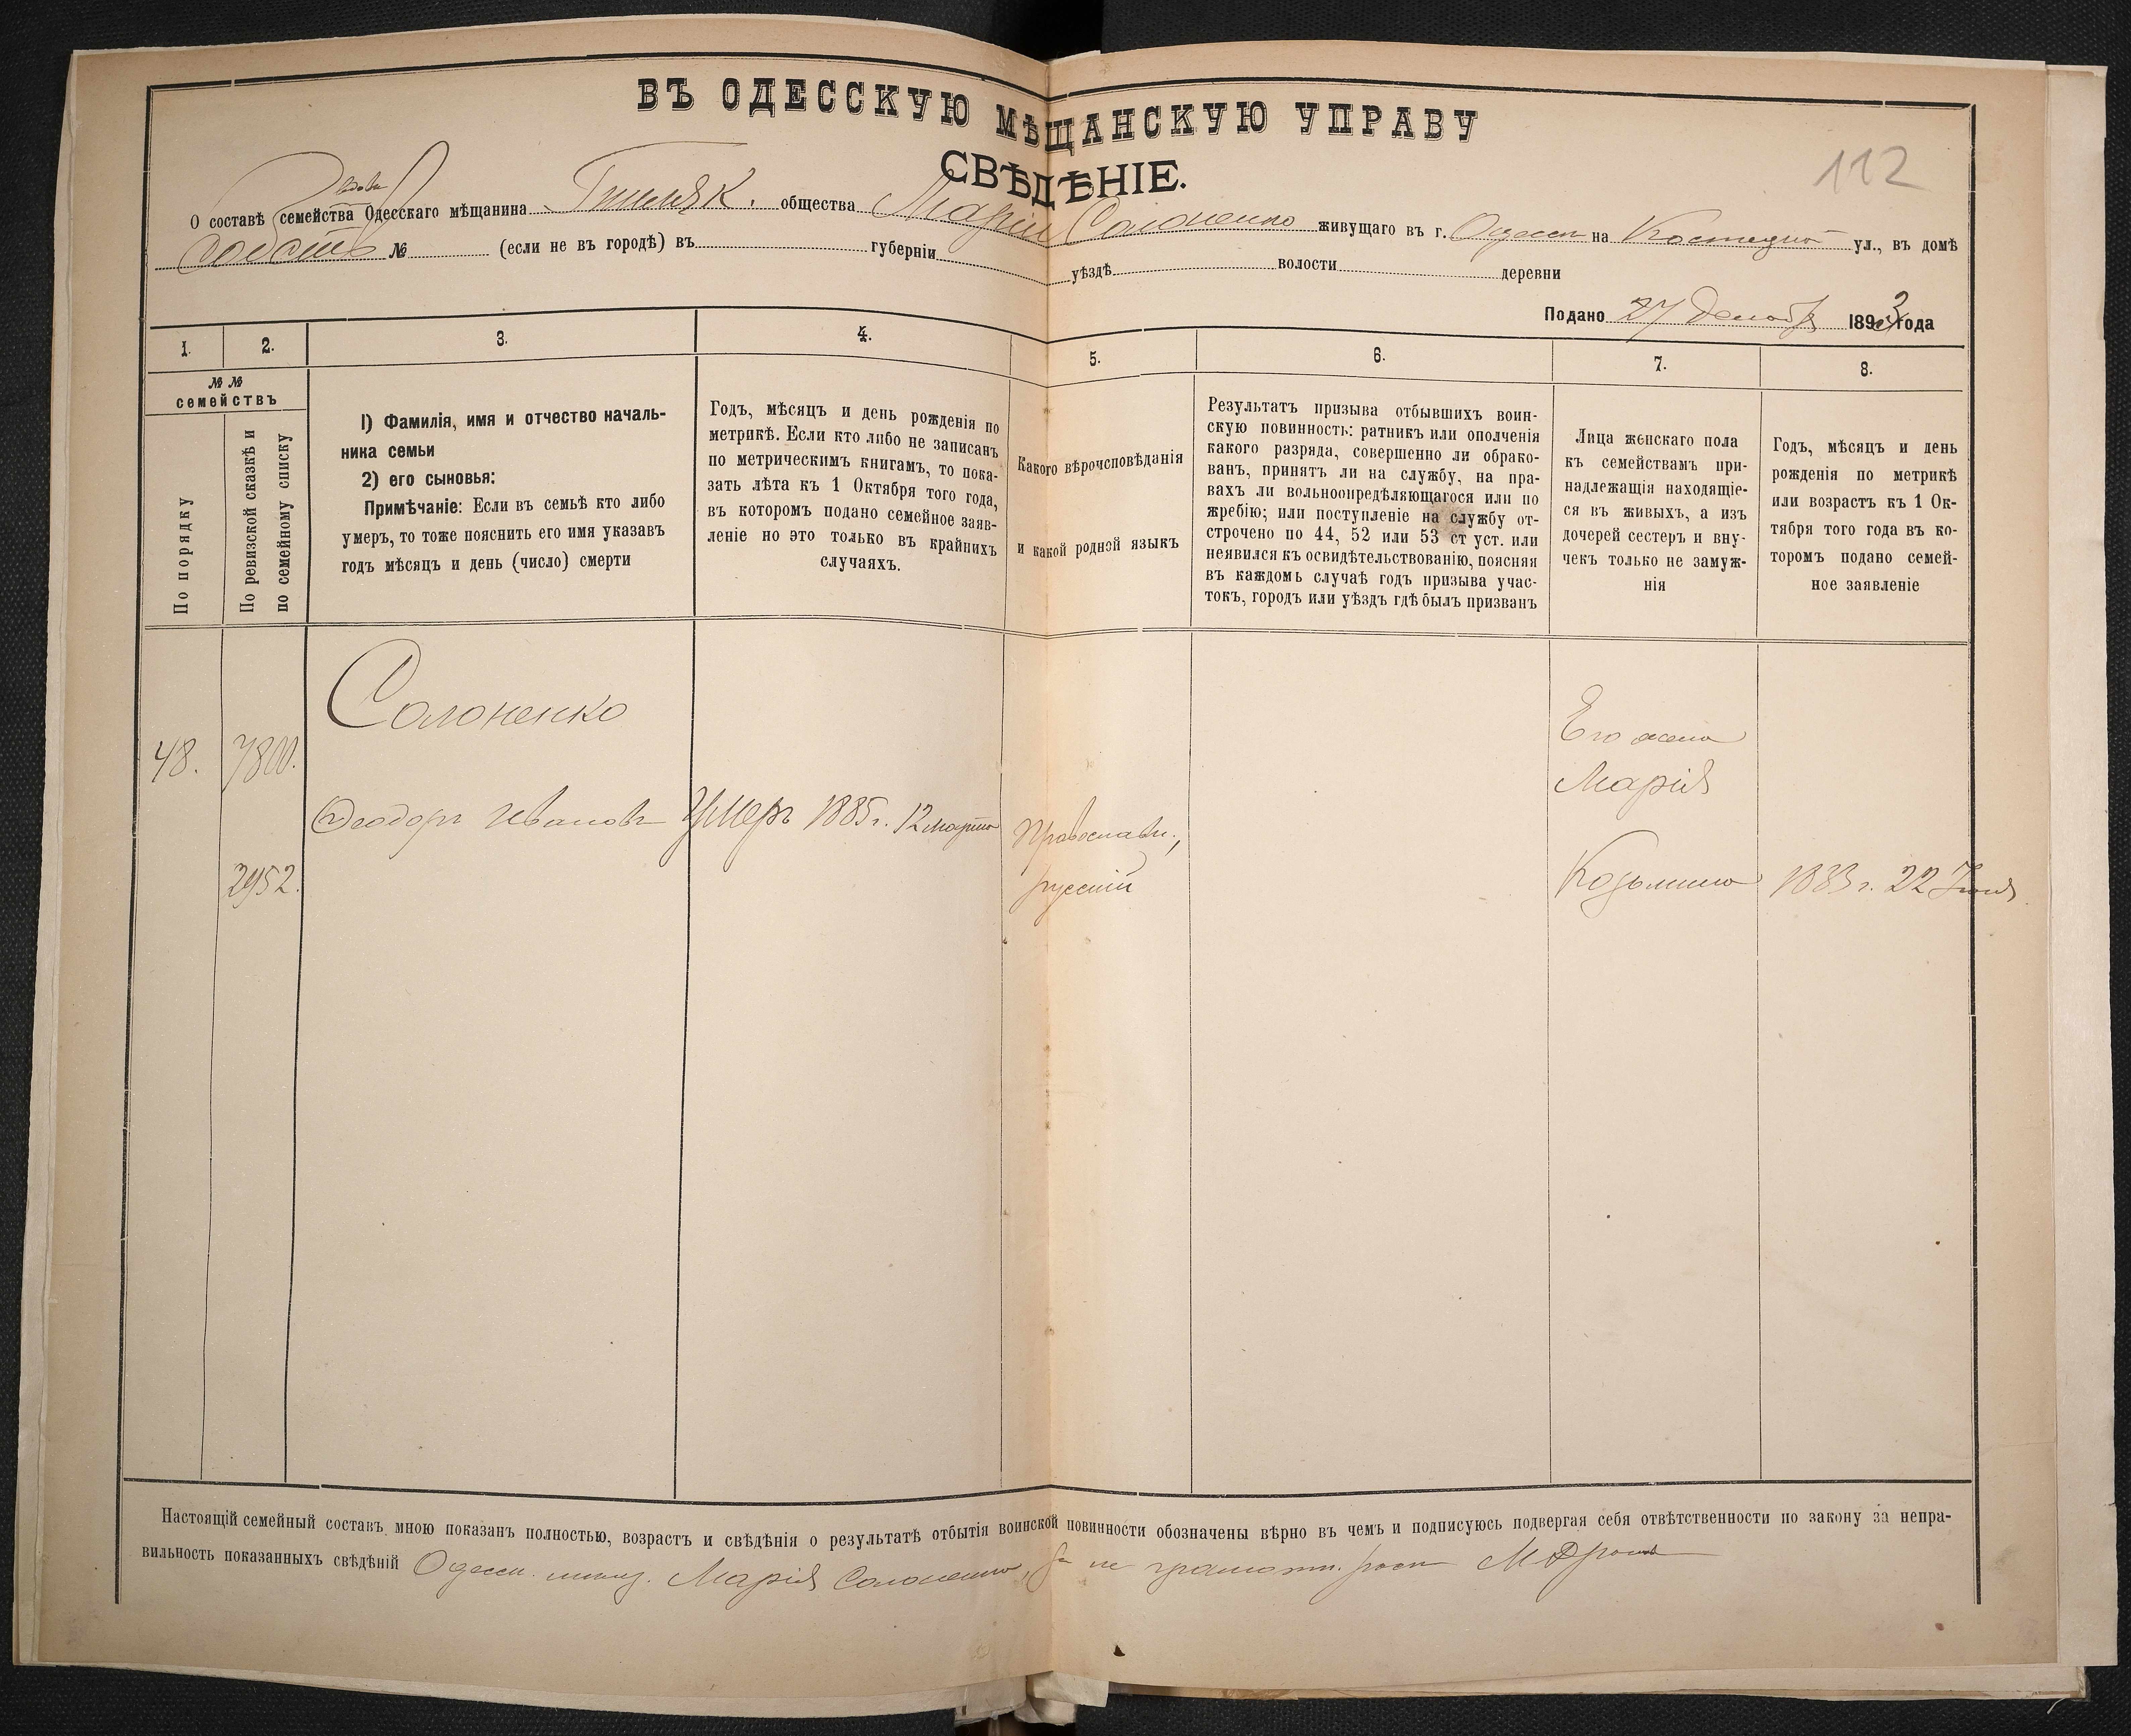 ВЪ ОДЕССКУЮ МѢЩАНСКУЮ УПРАВУ
СВѢДѢНІЕ.
112
вдовы
О составѣ семейства Одесскаго мѣщанина общества Маріи Солоненко живущаго въ г. Одессѣ на Костецкой ул., въ домѣ
собств № (если не въ городѣ) въ губерніи уѣздѣ волости деревни
Подано 27 Декабря 1893 года
1. 2. 3. 4. 5. 6. 7. 8.
№ №
семействъ
По порядку
По ревизской сказкѣ и
по семейному списку
1) Фамилія, имя и отчество началь-
ника семьи
2) его сыновья:
Примѣчаніе: Если въ семьѣ кто либо
умеръ, то тоже пояснить его имя указавъ
годъ мѣсяцъ и день (число) смерти
Годъ, мѣсяцъ и день рожденія по
метрикѣ. Если кто либо не записанъ
по метрическимъ книгамъ, то пока-
зать лѣта къ 1 Октября того года,
въ которомъ подано семейное заяв-
леніе но это только въ крайнихъ
случаяхъ.
Какого вѣроисповѣданія
и какой родной языкъ
Результатъ призыва отбывшихъ воин-
скую повинность: ратникъ или ополченія
какого разряда, совершенно ли обрако-
ванъ, принятъ ли на службу, на пра-
вахъ ли вольноопредѣляющагося или по
жребію; или поступленіе на службу от-
строчено по 44, 52 или 53 ст уст. или
неявился къ освидѣтельствованію, поясняя
въ каждомъ случаѣ годъ призыва учас-
токъ, городъ или уѣздъ гдѣ былъ призванъ
Лица женскаго пола
къ семействамъ при-
надлежащія находящіе-
ся въ живыхъ, а изъ
дочерей сестеръ и вну-
чекъ только не замуж-
нія
Годъ, мѣсяцъ и день
рожденія по метрикѣ
или возрастъ къ 1 Ок-
тября того года въ ко-
торомъ подано семей-
ное заявленіе
Солоненко
Его жена
48. 7800.
Марія
Ѳеодоръ Ивановъ Умеръ 1885 г. 12 марта Православн.,
2952. русскій Козьмина 1833 г. 22 Іюля
Настоящій семейный составъ мною показанъ полностью, возрастъ и свѣдѣнія о результатѣ отбытія воинской повинности обозначены вѣрно въ чемъ и подписуюсь подвергая себя отвѣтственности по закону за непра-
вильность показанныхъ свѣдѣній Одесск. мѣщ. Марія Солоненко, за не грамотн. росп